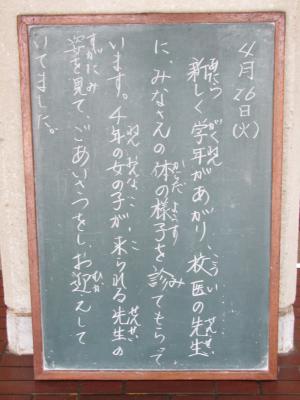 4月26日(火)
新しく学年があがり、校医の先生
に、みなさんの体の様子を診てもらって
います。4年の女の子が、来られる先生の
姿を見て、ごあいさつをし、お迎えして
いてました。